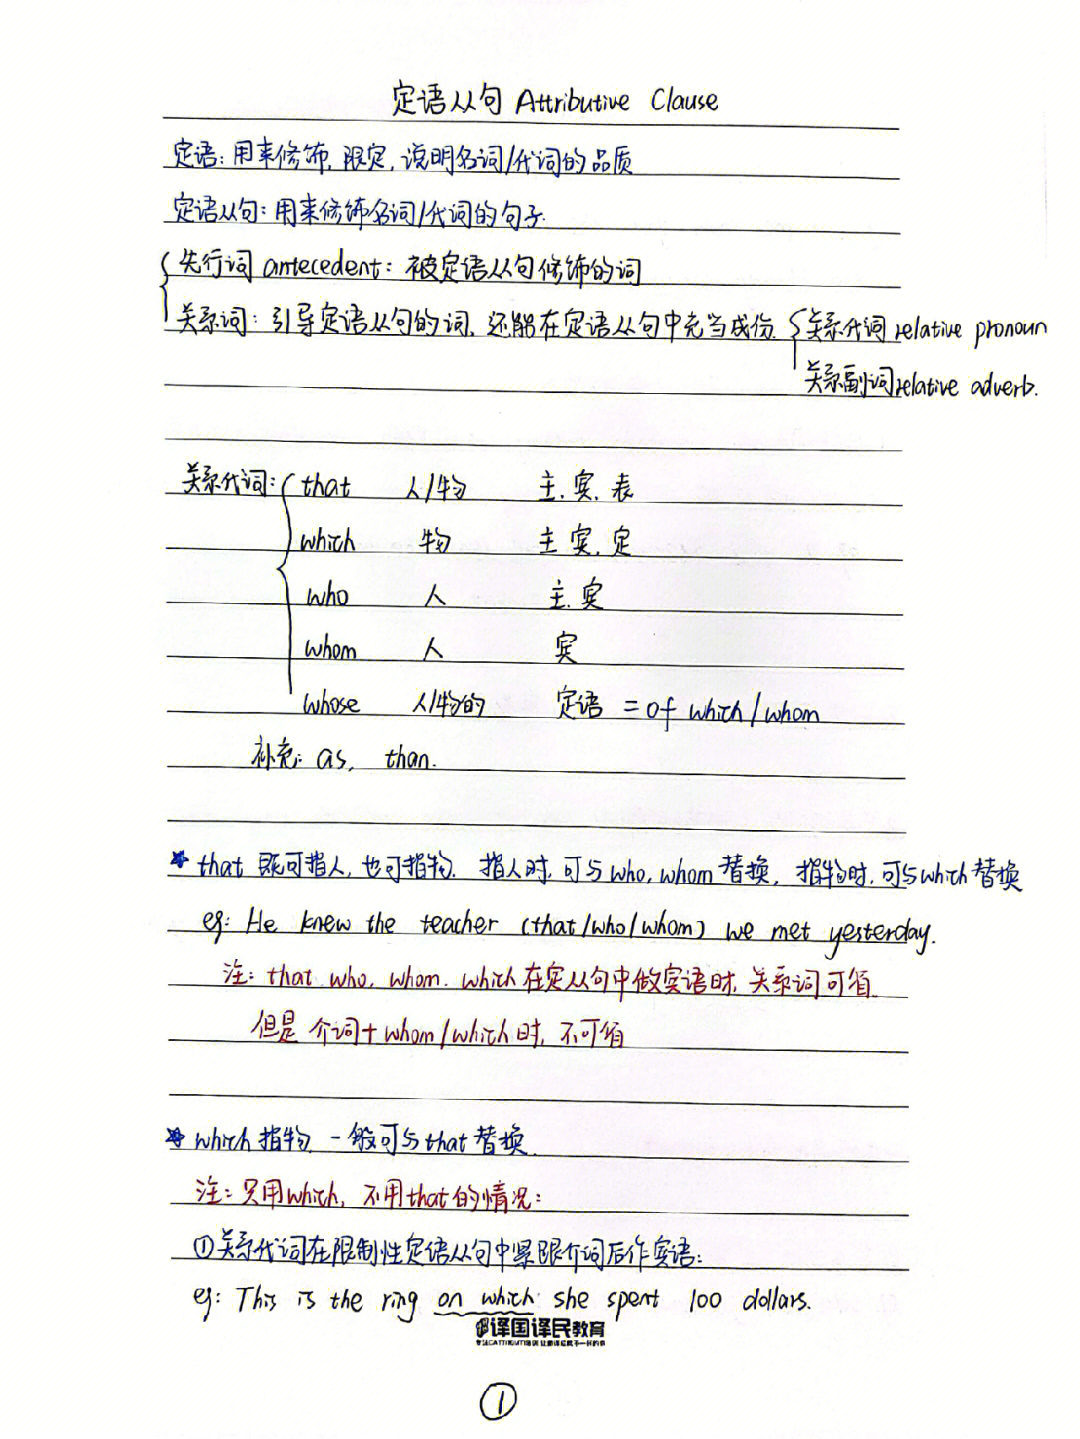 定语从句 Attributive Clause
定语: 用来修饰, 限定, 说明名词/代词的品质
定语从句: 用来修饰名词/代词的句子.
先行词 antecedent: 被定语从句修饰的词
关系词: 引导定语从句的词, 还能在定语从句中充当成份. 关系代词 relative pronoun
关系副词 relative adverb.
关系代词: that 人/物 主. 宾. 表
which 物 主 宾. 定
who 人 主. 宾
whom 人 宾
whose 人/物的 定语 = of which/whom
补充: as, than.
★ that 既可指人, 也可指物. 指人时, 可与 who, whom 替换, 指物时, 可与 which 替换
eg: He knew the teacher (that/who/whom) we met yesterday.
注: that. who, whom. which 在定从句中做宾语时, 关系词可省.
但是 介词+whom/which 时, 不可省
★ which 指物, 一般可与 that 替换.
注: 只用which, 不用that 的情况:
①关系代词在限制性定语从句中紧跟介词后作宾语:
eg: This is the ring on which she spent 100 dollars.
译国译民教育
①